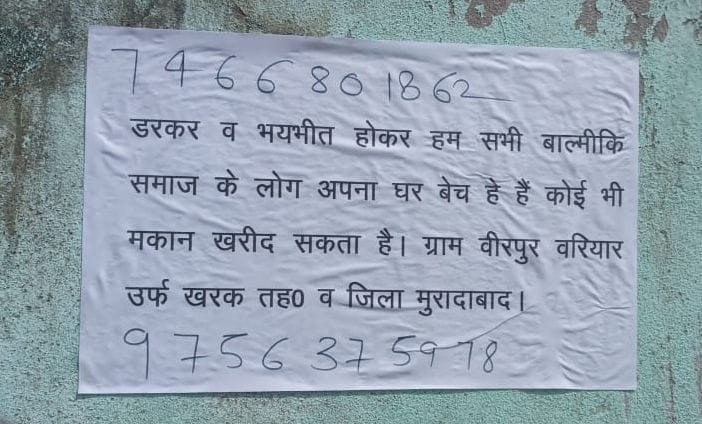 7466801862
डरकर व भयभीत होकर हम सभी बाल्मीकि
समाज के लोग अपना घर बेच हे हैं कोई भी
मकान खरीद सकता है। ग्राम वीरपुर वरियार
उर्फ खरक तह0 व जिला मुरादाबाद।
9756375978